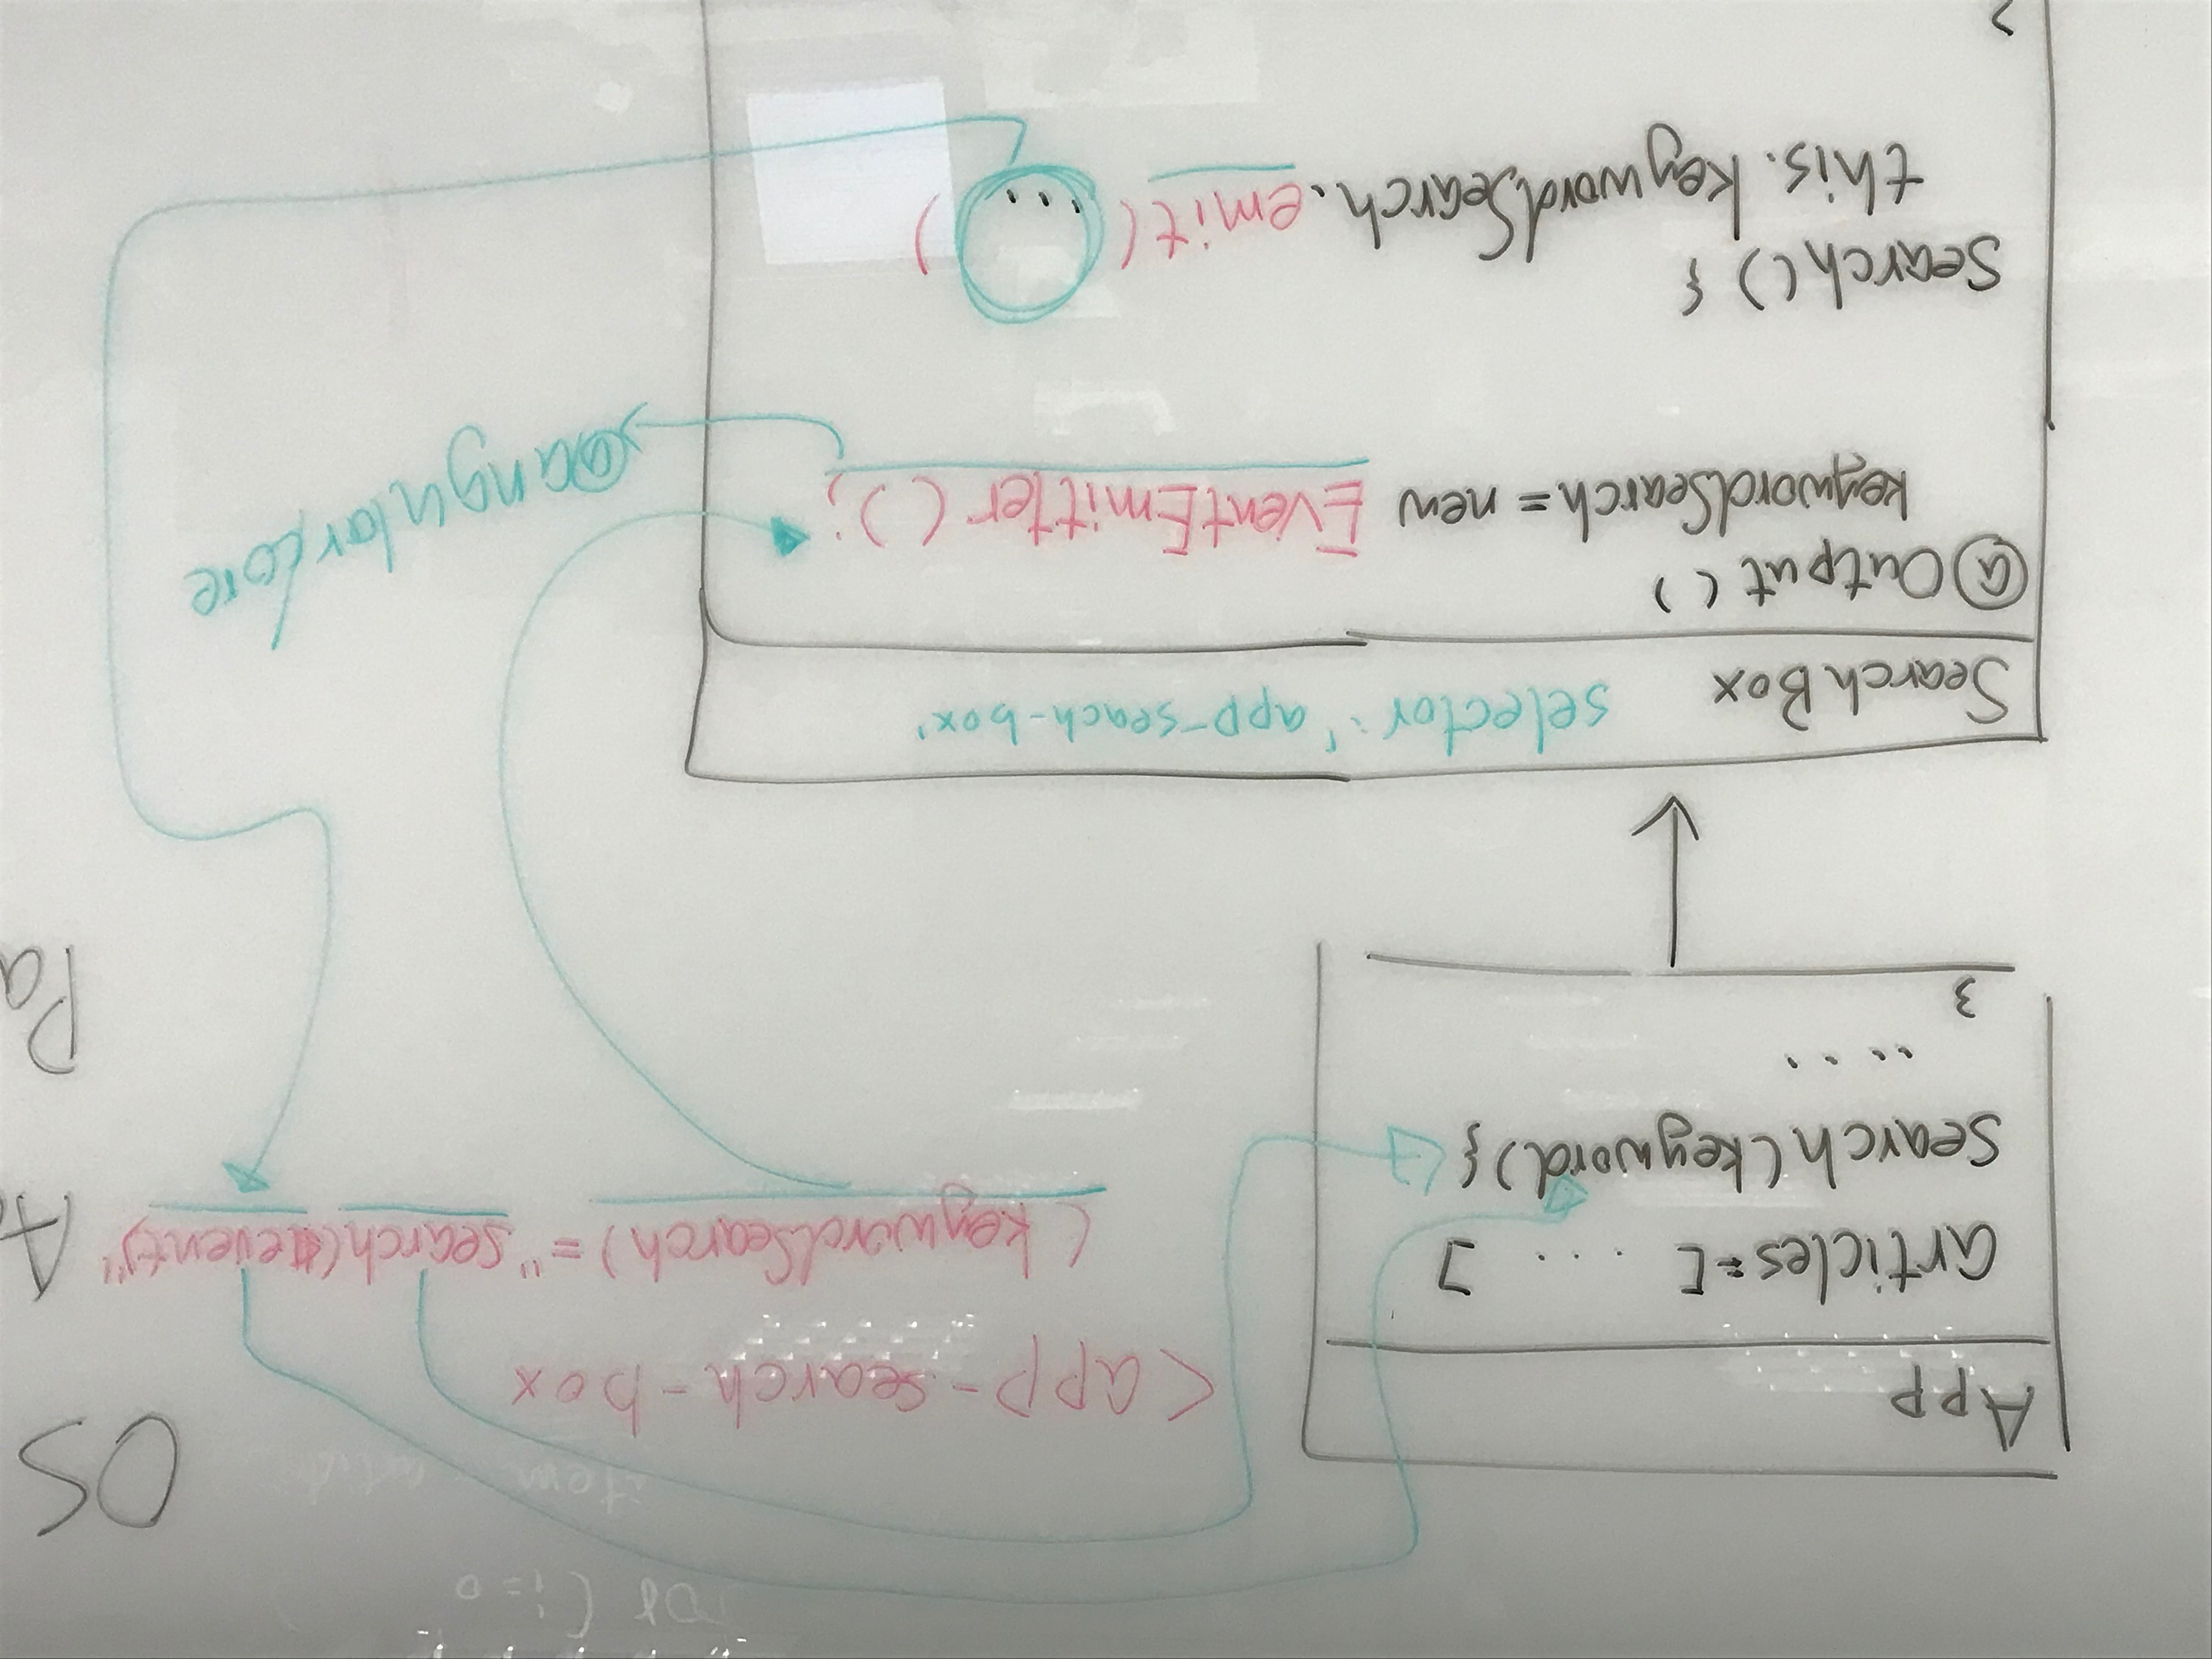 for (i=0
item
OS
App
articles=[ ... ]
search(keyword){
....
}
<app-search-box
(keywordSearch)="search($event)"
A
Pa
SearchBox selector:'app-seach-box'
@Output()
keywordSearch= new EventEmitter();
@angular/core
search(){
this.keywordSearch.emit(...)
}